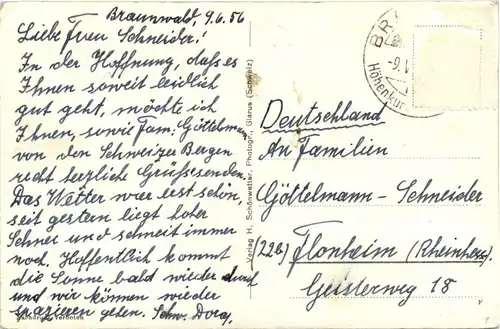 Braunwald, 9.6.56
Liebe Frau Schneider!
In der Hoffnung, daß es
Ihnen soweit leidlich
gut geht, möchte ich
Ihnen, sowie Fam: Göttelmann
von den Schweizer Bergen
recht herzliche Grüße senden.
Das Wetter war erst schön,
seit gestern liegt hoher
Schnee und schneit immer
noch. Hoffentlich kommt
die Sonne bald wieder durch
und wir können wieder
spazieren gehen. Schw. Dora,
Nachdruck verboten
Verlag H. Schönwetter, Photogr., Glarus (Schweiz)
BR
-9.V
Höhenkur
Deutschland
An Familien
Göttelmann-Schneider
(22b) Flonheim (Rheinhess.)
Geisterweg 18